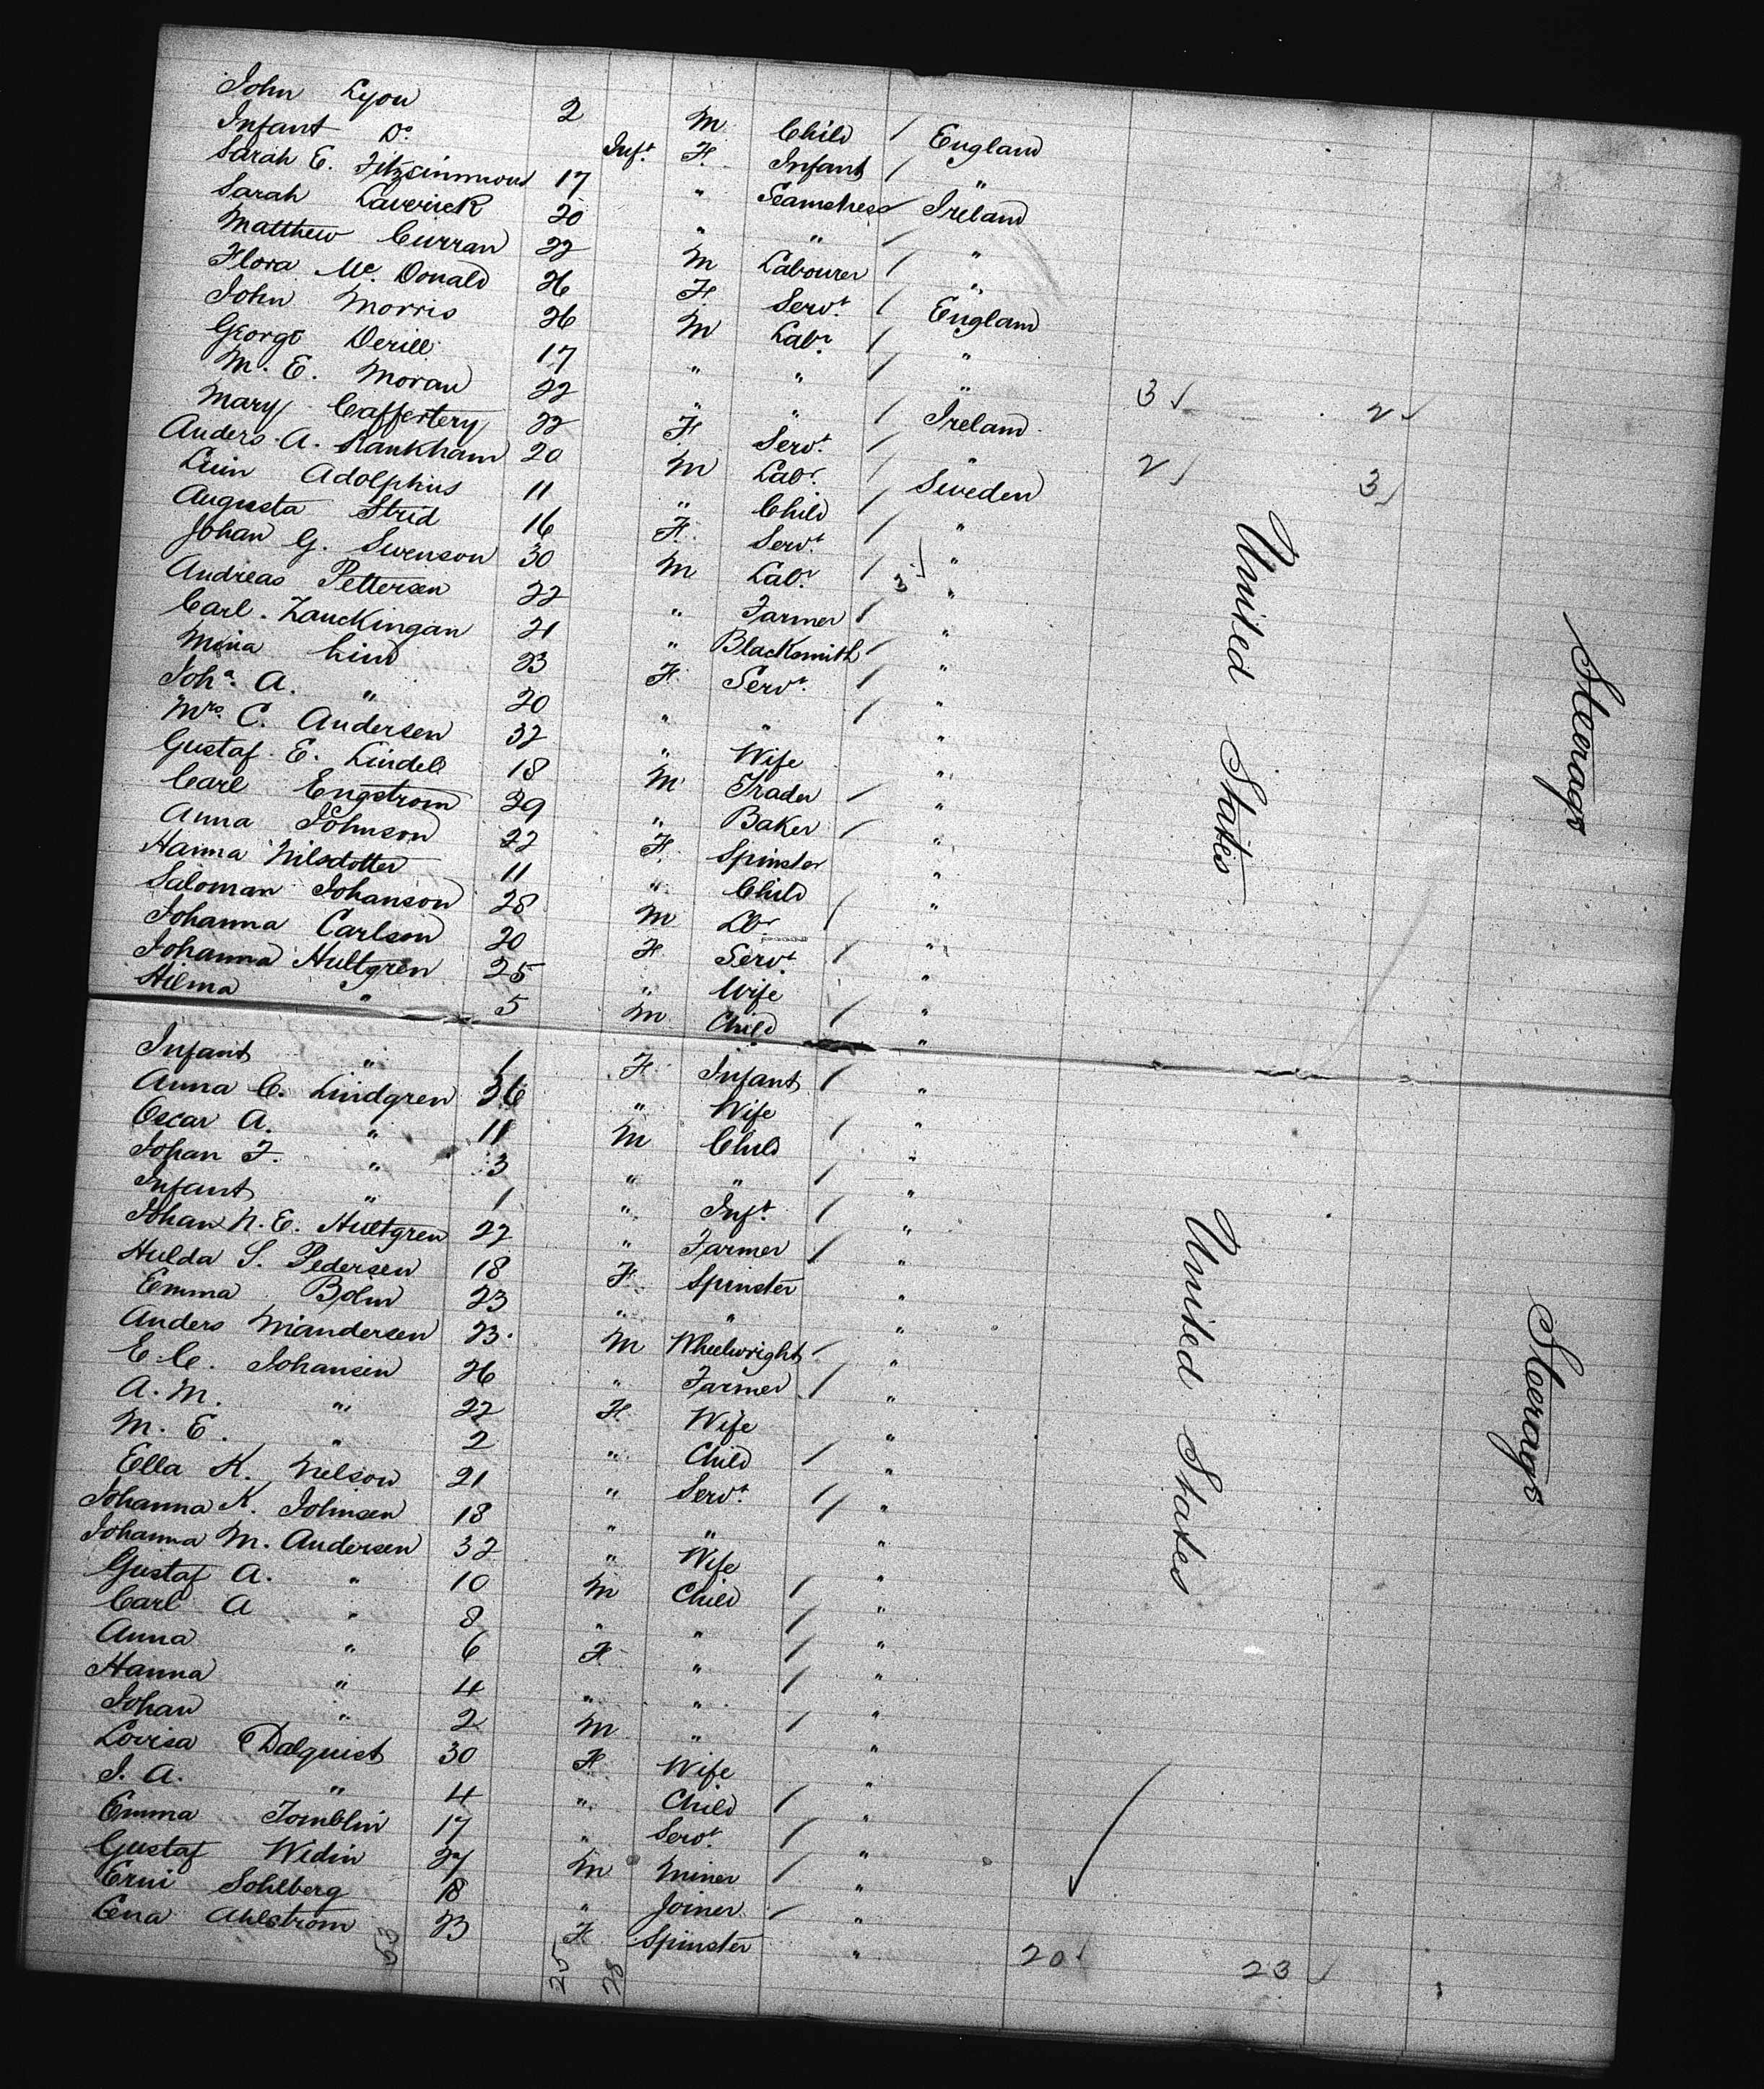 John Lyon 2 M Child / England
Infant Do. Inft. F. Infant / "
Sarah E. Fitzsimmons 17 " Seamstress / Ireland
Sarah Laverick 20 " " / "
Matthew Curran 22 M Labourer / "
Flora Mc. Donald 26 F. Servt. / England
John Morris 26 M Labr. / "
George Derill 17 " " / "
M. E. Moran 22 " " / Ireland 3 2
Mary Caffertery 22 F. Servt. /
Anders A. Rankham 20 M Labr. / Sweden 2 3
Adolphus 11 " Child / "
Augusta Strid 16 F. Servt. / "
Johan G. Swenson 30 M Labr. / 3 "
Andreas Pettersen 22 " Farmer / "
Carl Zauckingan 21 " Blacksmith / "
Mina Lind 23 F. Servt. / "
Joha. A. " 20 " " / "
Mrs. C. Andersen 32 " Wife "
Gustaf E. Lindell 18 M Trader / "
Carl Engstrom 29 " Baker / "
Anna Johnson 22 F. Spinster "
Hanna Nilsdotter 11 " Child / "
Saloman Johanson 28 M Lbr / "
Johanna Carlson 20 F. Servt. / "
Johanna Hultgren 25 " Wife "
Hilma " 5 M Child / "
Infant " 1 F. Infant / "
Anna C. Lindgren 36 " Wife "
Oscar A. " 11 M Child / "
Johan F. " 3 " " / "
Infant " 1 " Inft. / "
Johan N. E. Hultgren 22 " Farmer / "
Hulda S. Pedersen 18 F. Spinster "
Emma Bolin 23 " " "
Anders Miandersen 23 M Wheelwright / "
E. C. Johansen 26 " Farmer / "
A. M. " 22 F. Wife "
M. E. " 2 " Child / "
Ella K. Nelson 21 " Servt. / "
Johanna K. Johnsen 18 " " / "
Johanna M. Andersen 32 " Wife "
Gustaf A. " 10 M Child / "
Carl A " 8 " " / "
Anna " 6 F. " / "
Hanna " 4 " " / "
Johan " 2 M " / "
Lovisa Dalquist 30 F Wife "
J. A. " 4 " Child / "
Emma Tomblin 17 " Servt. / "
Gustaf Widin 27 M Miner / "
Erni Sohlberg 18 " Joiner / "
Lena Ahlstrom 23 F. Spinster "
53 25 28 20 23
United States
Steerage
United States
Steerage